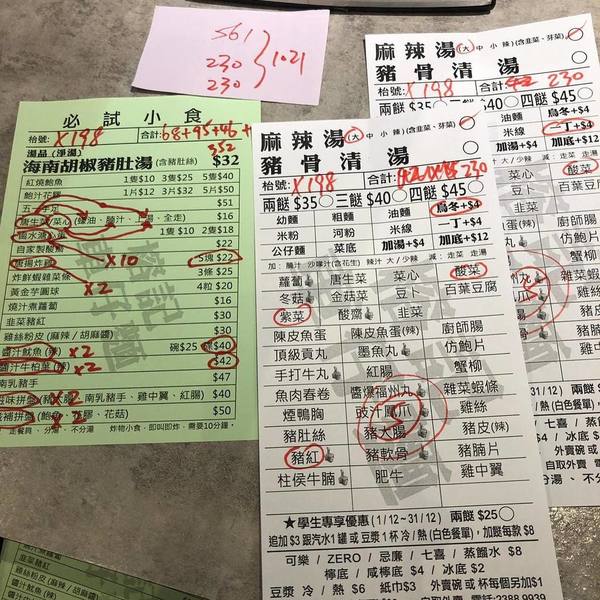 561
230
230
1021
必試小食
枱號: X198 合計: 68+95+46
湯品 (淨湯) 352
海南胡椒豬肚湯 (含豬肚絲) $32
紅燒鮑魚 1隻$10 3隻$25 5隻$40
鮑汁花膠 1片$12 3片$32 5片$50
$51
唐生菜/菜心 $16
1隻$10 2隻$18
自家製酸 $22
唐揚炸雞 X10 5塊$22
炸鮮蝦雜菜條 3條 $25
黃金芋圓球 X2 4粒 $20
燒汁煮蘿蔔 $16
韭菜豬紅 $30
雞絲粉皮 (麻辣 / 胡麻醬) $30
醬汁魷魚 (辣) X2 碗$25 $40
醬汁牛柏葉 (辣) X2 $42
南乳豬手 $47
南乳豬手、雞中翼、紅腸) $40
花膠、花菇) $50
走餐具、 分、不分湯 炸物小食,即叫即炸,需要10分鐘。
麻辣湯 (大 中 小 辣) (含韭菜、芽菜)
豬骨清湯
枱號: X198 合計: 230
兩餸 $35 三餸 $40 四餸 $45
幼麵 粗麵 油麵 烏冬+$4
米粉 河粉 米線 一丁+$4
公仔麵 菜底 加湯+$4 加底+$12
加:腩汁 沙嗲汁(含花生) 辣汁 大 / 少辣 減:走菜 走湯
蘿蔔 唐生菜 菜心 酸菜
冬菇 金菇菜 豆卜 百葉豆腐
紫菜 酸齋 韭菜
陳皮魚蛋 陳皮魚蛋(辣) 廚師腸
頂級貢丸 墨魚丸 仿鮑片
手打牛丸 紅腸 蟹柳
魚肉春卷 醬爆福州丸 雜菜蝦條
煙鴨胸 豉汁鳳爪 雞絲
豬肚絲 豬大腸 豬皮(辣)
豬紅 豬軟骨 豬腩片
柱侯牛腩 肥牛 雞中翼
★學生專享優惠 (1/12~31/12) 兩餸 $25
追加 $3 跟汽水1罐 或 豆漿1杯 冷 / 熱 (白色餐單),加餸每款 $8
可樂 / ZERO / 忌廉 / 七喜 / 蒸餾水 $8
檸底 / 咸檸底 $4 / 冰底 $2
豆漿 冷 / 熱 $6 紙巾$3 外賣碗 或 杯每個另加$1
電話:2388 9939
麻辣湯 (大 中 小 辣) (含韭菜、芽菜)
豬骨清湯
枱號: X198 合計: 230
兩餸 $35 $40 四餸 $45
油麵 烏冬+$4
米線 一丁+$4
加湯+$4 加底+$12
大 / 少辣 減:走菜 走湯
菜心 酸菜
豆卜 百葉豆腐
廚師腸
仿鮑片
蟹柳
雜菜蝦條
雞絲
豬皮(辣)
豬腩片
雞中翼
兩餸 $25
熱 (白色餐單)
$4 / 冰底 $2
外賣碗 或
自取外賣
燒汁煮蘿蔔
韭菜豬紅
雞絲粉皮 (麻辣 / 胡麻醬)
醬汁魷魚 (辣)